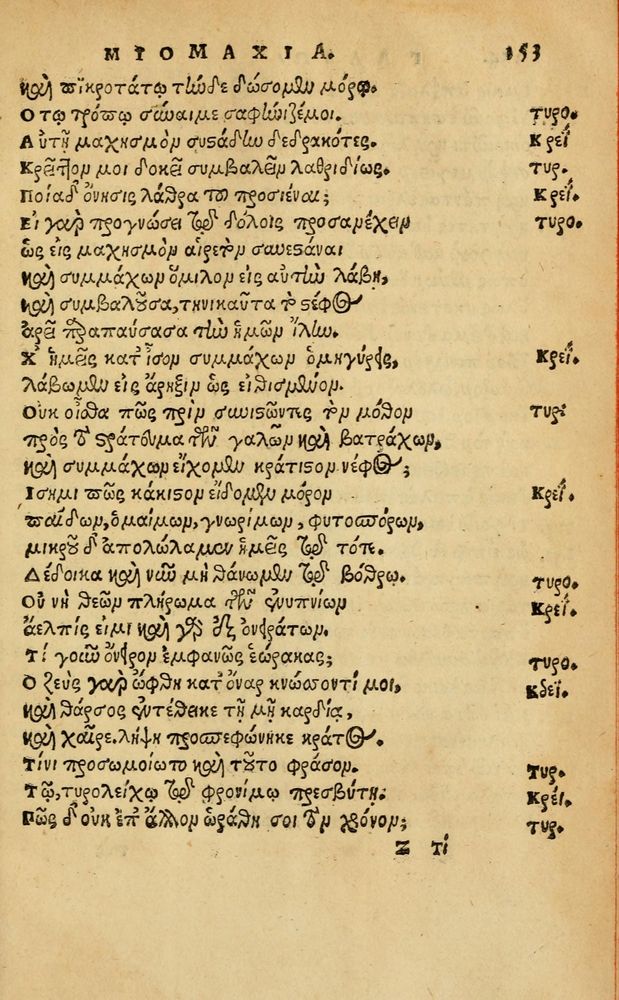 ΜΥΟΜΑΧΙΑ. 153
καὶ πικροτάτῳ τήνδε δώσομεν μόρῳ.
Οτῳ τρόπῳ σώαιμε σαφηνιζέμοι. τυρο.
Αὐτῇ μαχησμὸν συςάδην δεδρακότες. Κρεΐ
Κρεῖττον μοι δοκεῖ συμβαλεῖν λαθριδίως. τυρ.
Ποία δ' ὄνησις λάθρα τῷ προσιέναι; Κρεΐ.
Εἰ γὰρ προγνώσει τοῦ δόλοις προσανέχειν τυρο.
ὡς εἰς μαχησμὸν αἱρετὸν συνεςάναι
καὶ συμμάχων ὅμιλον εἰς αὐτὴν λάβῃ,
καὶ συμβαλοῦσα, τηνικαῦτα τὸ ςέφος
ἀρεῖ προαπαύσασα τὴν ἡμῶν ἴλην.
Χ' ἡμεῖς κατ' ἶσον συμμάχων ὁμηγύρεις, Κρεΐ.
λάβωμεν εἰς ἄρηξιν ὡς εἰθισμένον.
Οὐκ οἶσθα πῶς πρὶν συνιςῶντες τὸν μόθον τυρ:
πρὸς τὸ ςράτευμα τῶν γαλῶν καὶ βατράχων,
καὶ συμμάχων εἴχομεν κράτιςον νέφος;
Ισημι πῶς κάκιςον εἴδομεν μόρον Κρεΐ.
παίδων, ὁμαίμων, γνωρίμων, φυτοσπόρων,
μικροῦ δ' ἀπολώλαμεν ἡμεῖς τοῦ τότε.
Δέδοικα καὶ νῦν μὴ θάνωμεν ἐν βόθρῳ. τυρο.
Οὐ νὴ θεῶν πλήρωμα τῶν ἐνυπνίων Κρεΐ.
ἄελπίς εἰμι καὶ γὰρ ἐξ ὀνειράτων.
Τί γοῦν ὄνειρον ἐμφανῶς ἑώρακας; τυρο.
Ο ζεὺς γὰρ ὤφθη κατ' ὄναρ κνώσσοντί μοι, Κδεΐ.
καὶ θάρσος ἐντέθεικε τῇ μῇ καρδίᾳ,
καὶ χαῖρε. λήψῃ προσπεφώνηκε κράτος.
Τίνι προσωμοίωτο καὶ τοῦτο φράσον. Τυρ.
Τῷ, τυρολείχῳ τοῦ φρονίμῳ πρεσβύτῃ. Κρεΐ.
Πῶς δ' οὐκ ἐπ' ἄλλον ὡράθη σοι τὸν χρόνον; τυρ.
Ζ τί